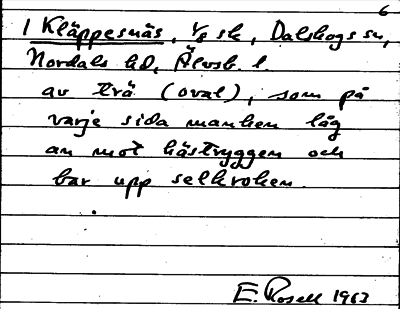 6
1 Kläppesnäs, 1/8 sk, Dalskogs sn,
Nordals hd, Älvsb. l.
av trä (oval), som på
varje sida manken låg
an mot hästryggen och
bar upp selkroken.
E. Rosell 1963